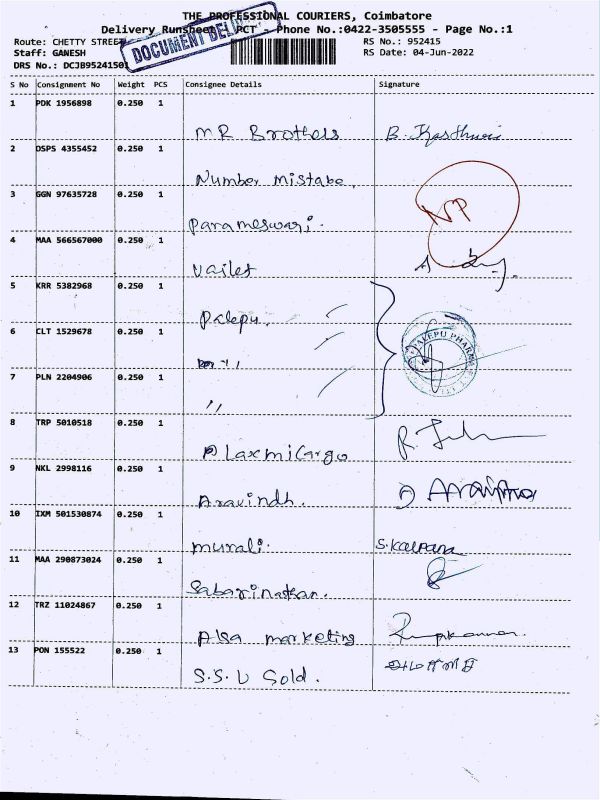 THE PROFESSIONAL COURIERS, Coimbatore
Delivery Runsheet PCT - Phone No.:0422-3505555 - Page No.:1
Route: CHETTY STREET
RS No.: 952415
Staff: GANESH
RS Date: 04-Jun-2022
DRS No.: DCJB9524150
DOCUMENT
S No Consignment No Weight PCS Consignee Details Signature
1 PDK 1956898 0.250 1
MR Brothers B. Kasthuri
2 DSPS 4355452 0.250 1
Number mistake.
3 GGN 97635728 0.250 1
NP
Parameswari.
4 MAA 566567000 0.250 1
Vailet
5 KRR 5382968 0.250 1
Palepu.
6 CLT 1529678 0.250 1
PALEPU PHARMA
" "
7 PLN 2204906 0.250 1
"
8 TRP 5010518 0.250 1
Laxmi Cargo
9 NKL 2998116 0.250 1
Aravindh.
10 IXM 501530874 0.250 1
murali. S.Kalpana
11 MAA 290873024 0.250 1
Sabarinathan.
12 TRZ 11024867 0.250 1
Alsa marketing
13 PON 155522 0.250 1
S.S.V Gold.